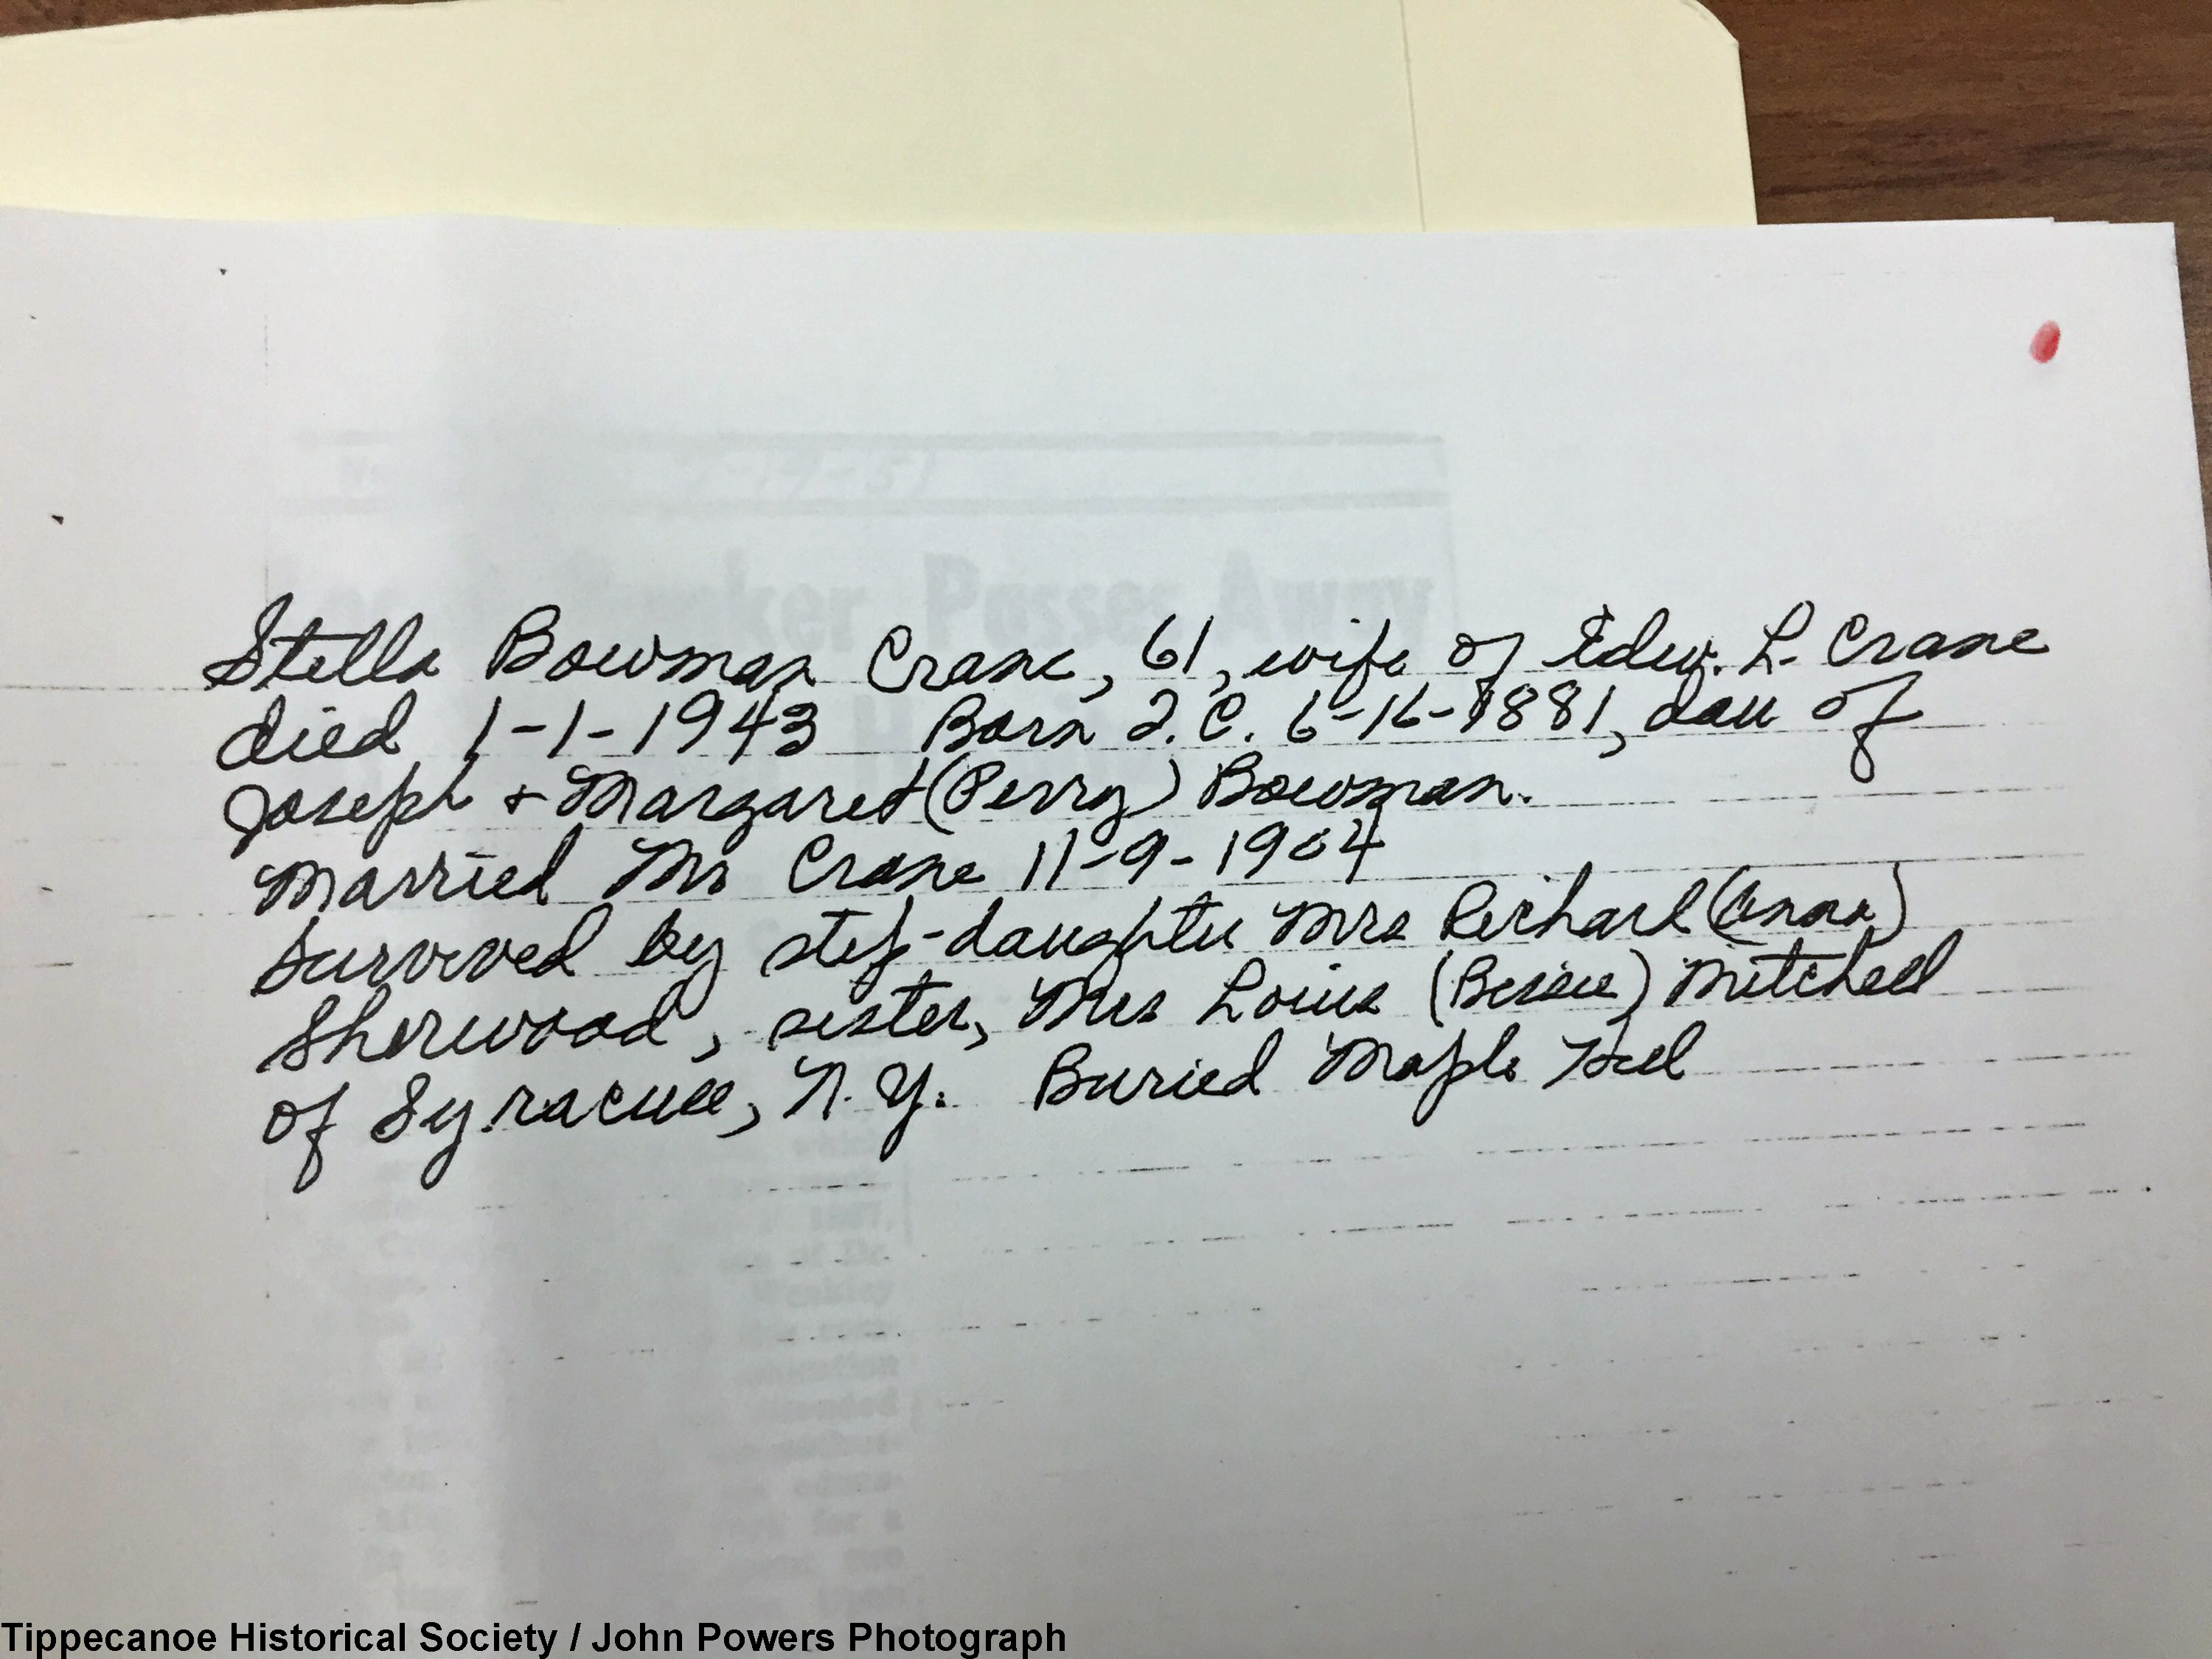 Passes Away
Stella Bowman Crane, 61, wife of Edw. L. Crane
died 1-1-1943 Born T.C. 6-16-1881, dau of
Joseph + Margaret (Perry) Bowman.
Married Mr Crane 11-9-1904
Survived by step-daughter Mrs Richard (Anna)
Sherwood, sister, Mrs Louis (Bessie) Mitchell
of Syracuse, N.Y. Buried Maple Hill
Tippecanoe Historical Society / John Powers Photograph